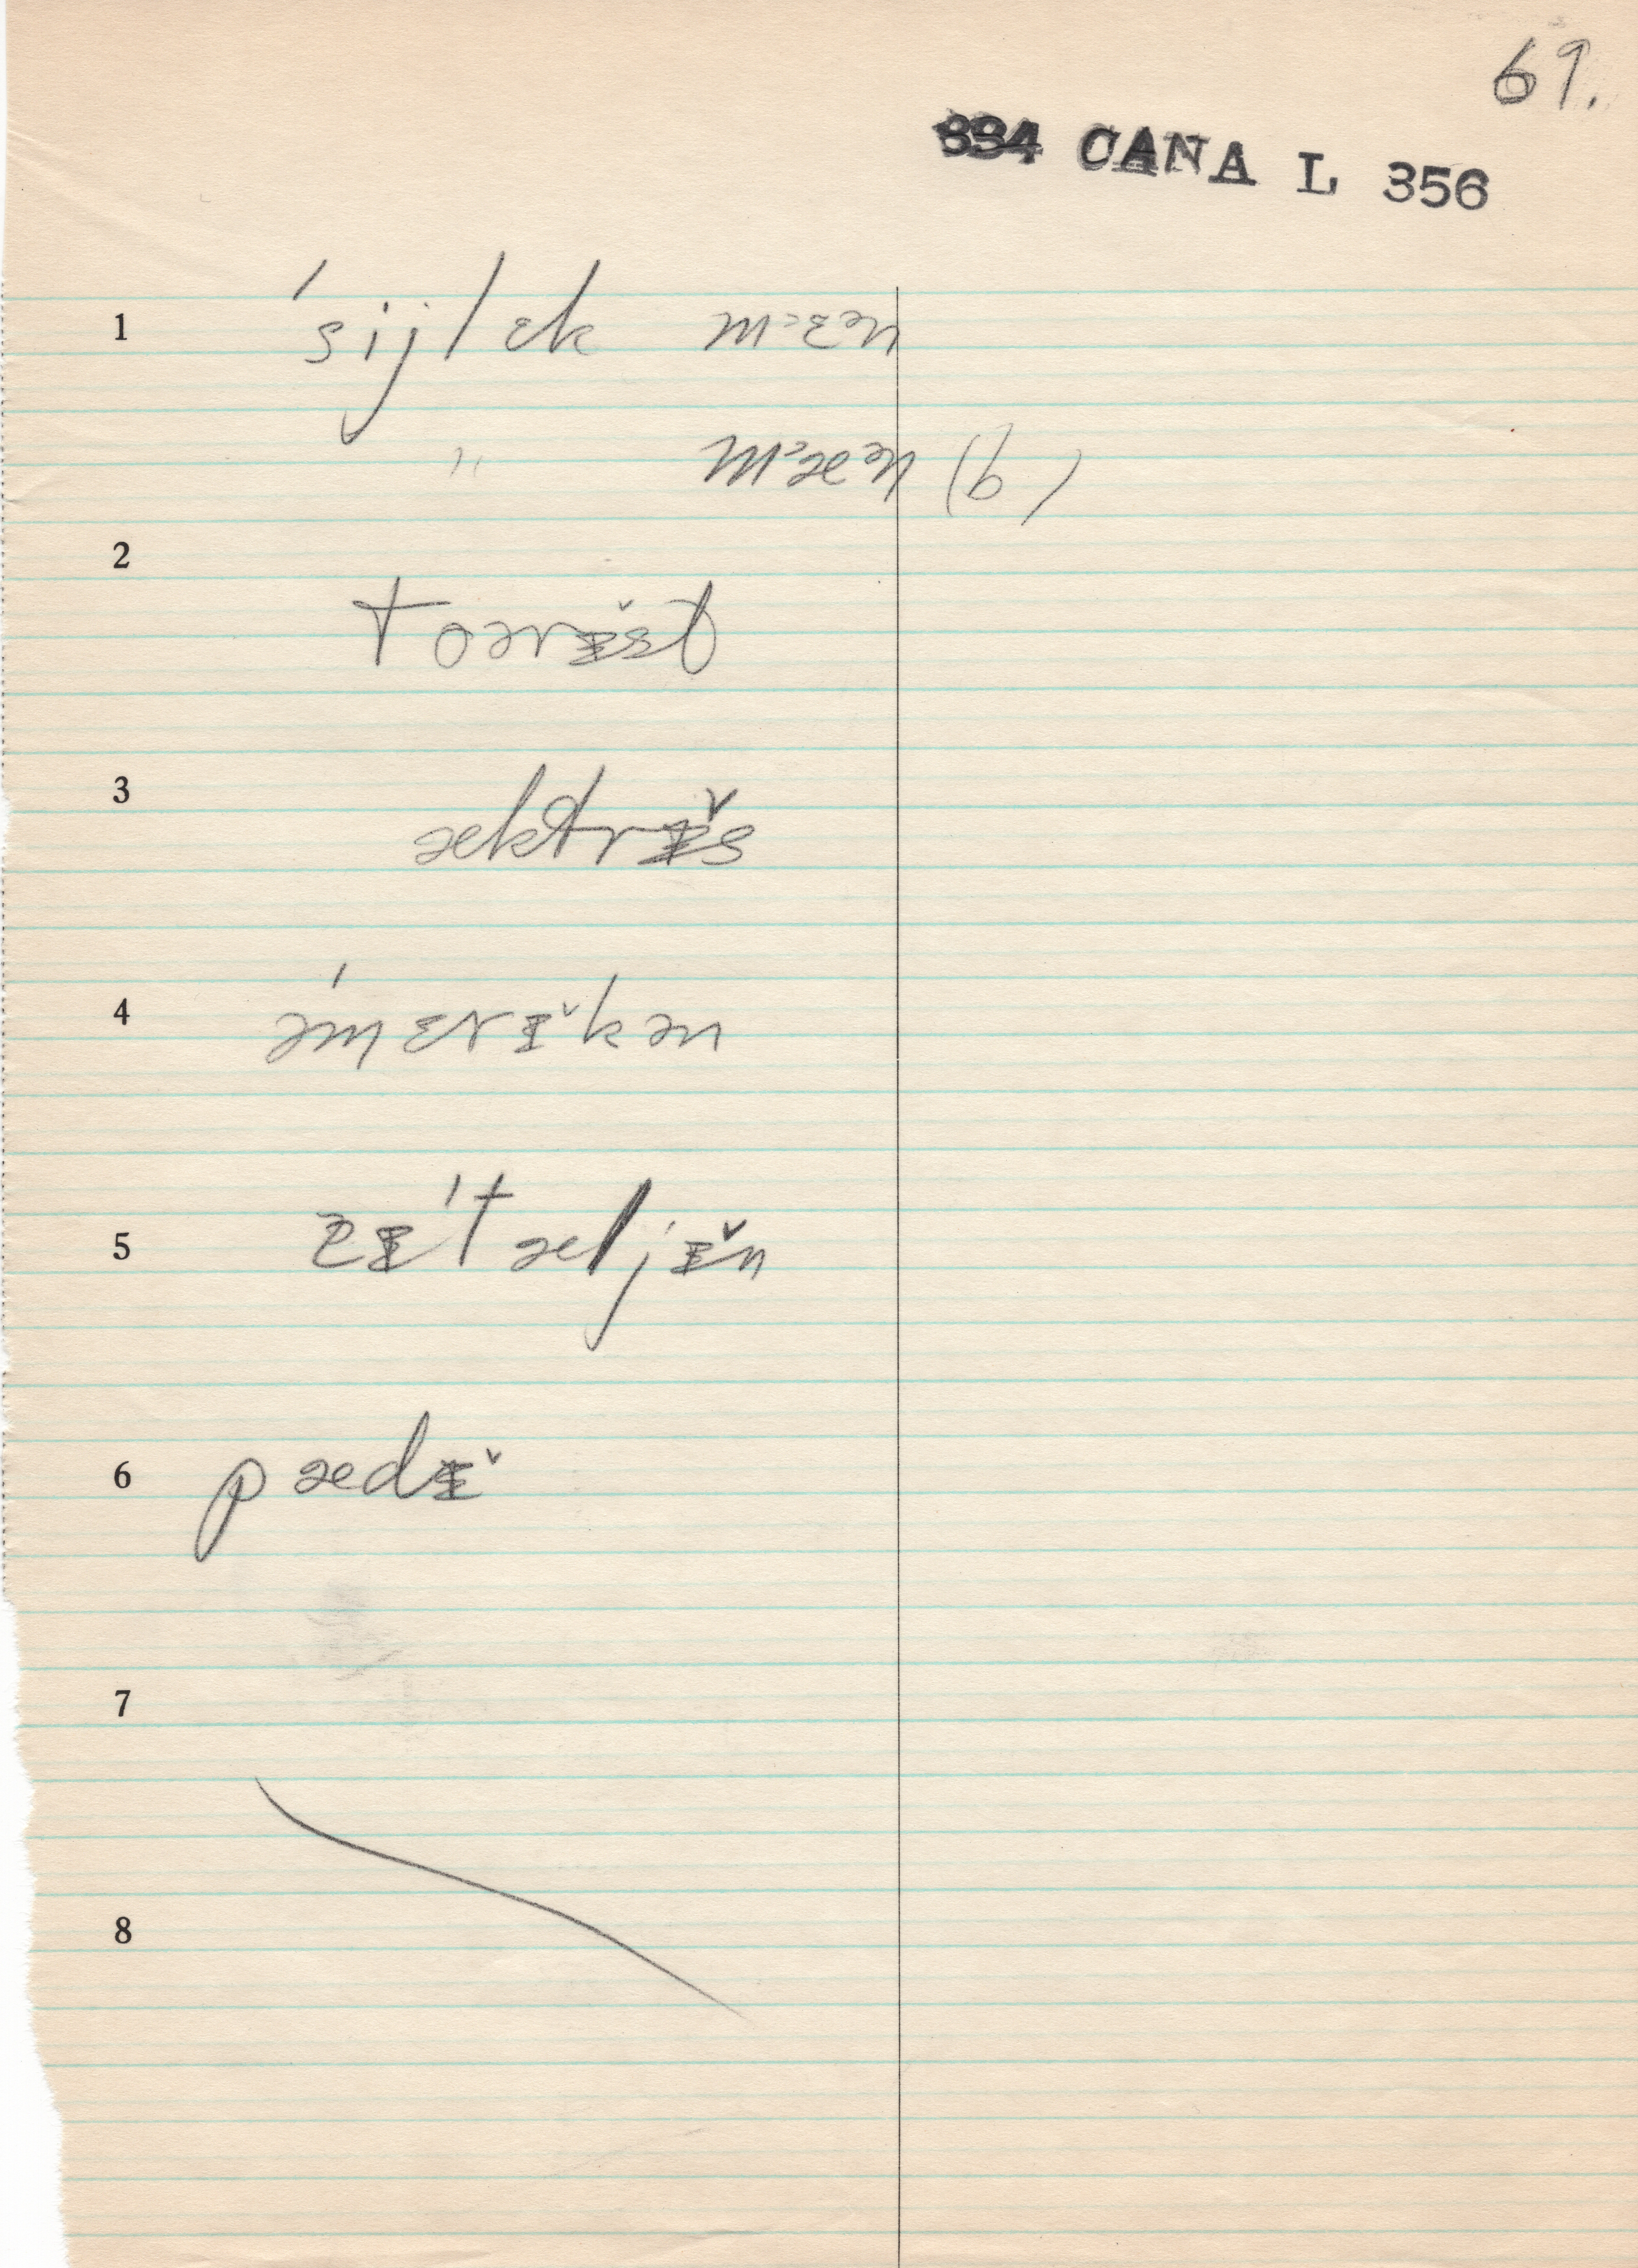 69.
334 CANA L 356
1 ˈsijlɛk mᵊɛᵊn
" mᵊæᵊn (b)
2
toərɪ̌st
3 æktrɪ̌s
4 əˈmɛrɪ̌kən
5 ɪˈtæljɪ̌n
6 pædɪ̌
7
8